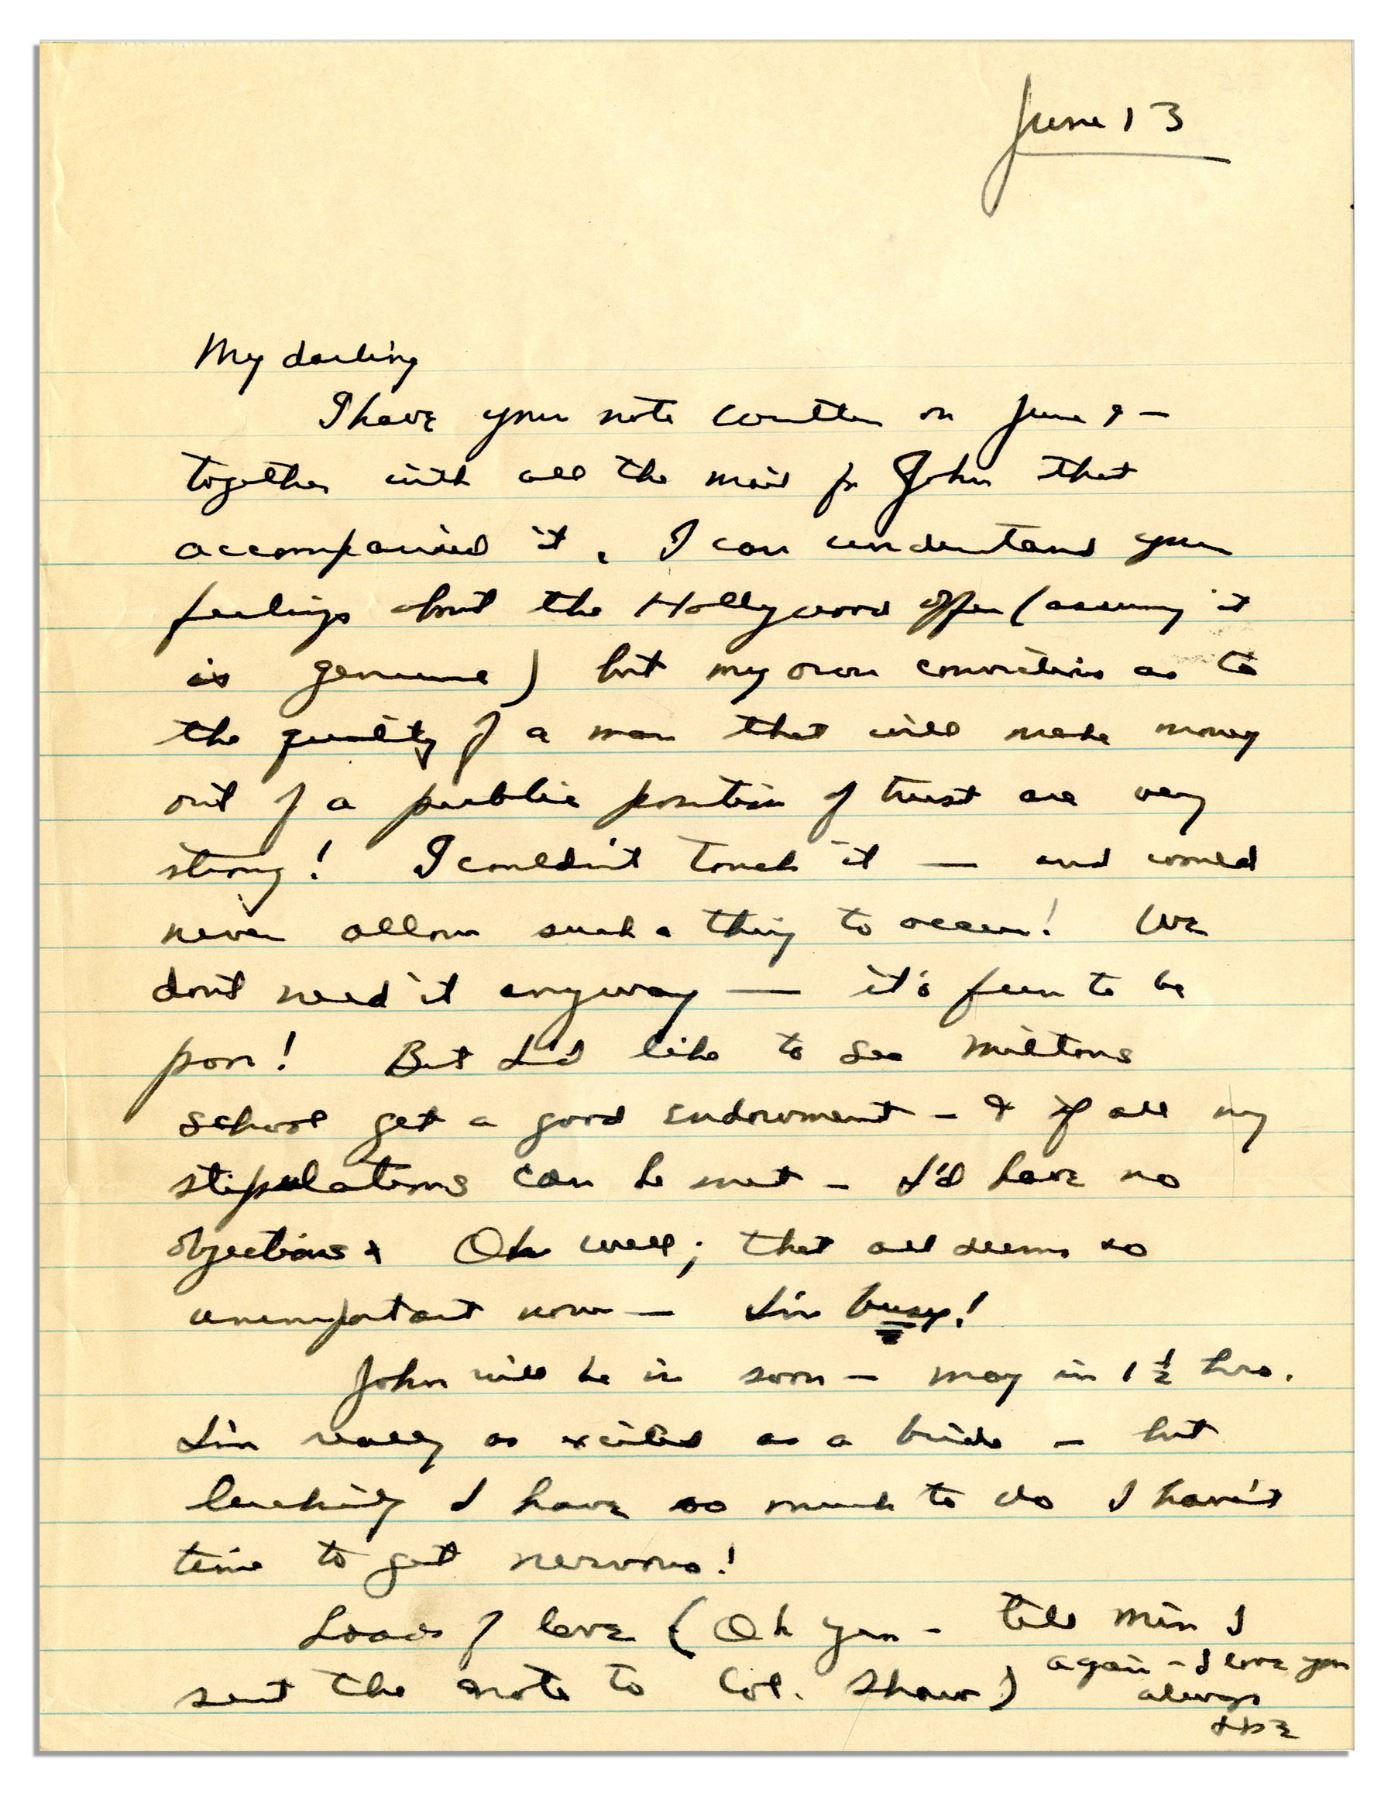 June 13
My darling
I have your note written on June 9 —
together with all the mail for John that
accompanied it. I can understand your
feelings about the Hollywood offer (assuming it
is genuine) but my own convictions as to
the quality of a man that will make money
out of a public position of trust are very
strong! I couldn't touch it — and would
never allow such a thing to occur! We
don't need it anyway — it's fun to be
poor! But I'd like to see Miltons
school get a good endowment - & if all my
stipulations can be met - I'd have no
objections. Oh well; that all seems so
unimportant now — I'm busy!
John will be in soon — may in 1 1/2 hrs.
I'm really as excited as a bride — but
luckily I have so much to do I haven't
time to get nervous!
Loads of love (Oh yes - tell Min I
sent the note to Col. Shaw)
again - I love you
always